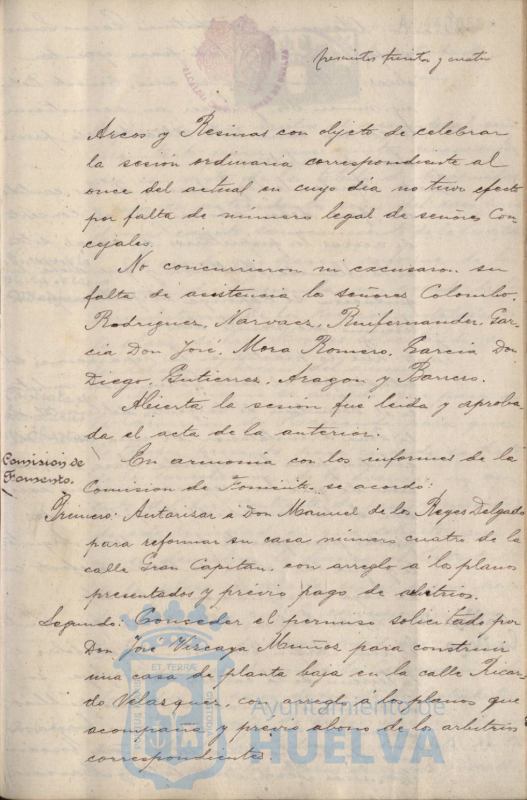 trescientos treinta y cuatro
Arcos y Resinas con objeto de celebrar
la sesión ordinaria correspondiente al
once del actual en cuyo dia no tuvo efecto
por falta de número legal de señores Con-
cejales.
No concurrieron ni excusaron su
falta de asistencia lo señores Colombo,
Rodriguez, Narvaez, Ruifernandez, Gar-
cia Don José, Mora Romero, Garcia Don
Diego, Gutierrez, Aragon y Barrero.
Abierta la sesión fué leida y aproba-
da el acta de la anterior.
Comisión de
Fomento.
En armonia con los informes de la
Comision de Fomento se acordó:
Primero: Autorizar á Don Manuel de los Reyes Delgado
para reformar su casa número cuatro de la
calle Gran Capitan, con arreglo á los planos
presentados y previo pago de arbitrios.
Segundo: Conseder el permiso solicitado por
Don José Vizcaya Muñoz para construir
una casa de planta baja en la calle Ricar-
do Velazquez, con arreglo á los planos que
acompaña y previo abono de los arbitrios
correspondientes.
Ayuntamiento de
HUELVA